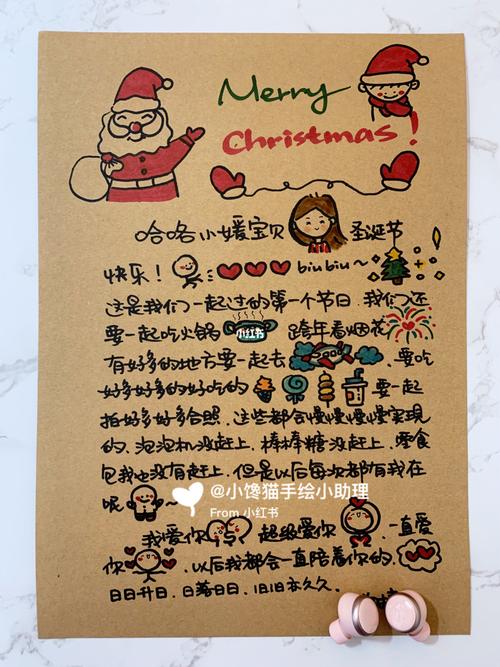 Merry
Christmas!
哈咯小媛宝贝 圣诞节
快乐! biubiu~
这是我们一起过的第一个节日.我们还
要一起吃火锅 小红书 跨年看烟花
有好多的地方要一起去 .要吃
好多好多的好吃的 要一起
拍好多好多合照.这些都会慢慢慢慢实现
的.泡泡机没赶上.棒棒糖没赶上.零食
包我也没有赶上.但是以后每次都有我在
呢 ~
@小馋猫手绘小助理
From 小红书
我爱你 超级爱你 .一直爱
你 .以后我都会一直陪着你的.
日日升日.日落日日.旧旧本久久.